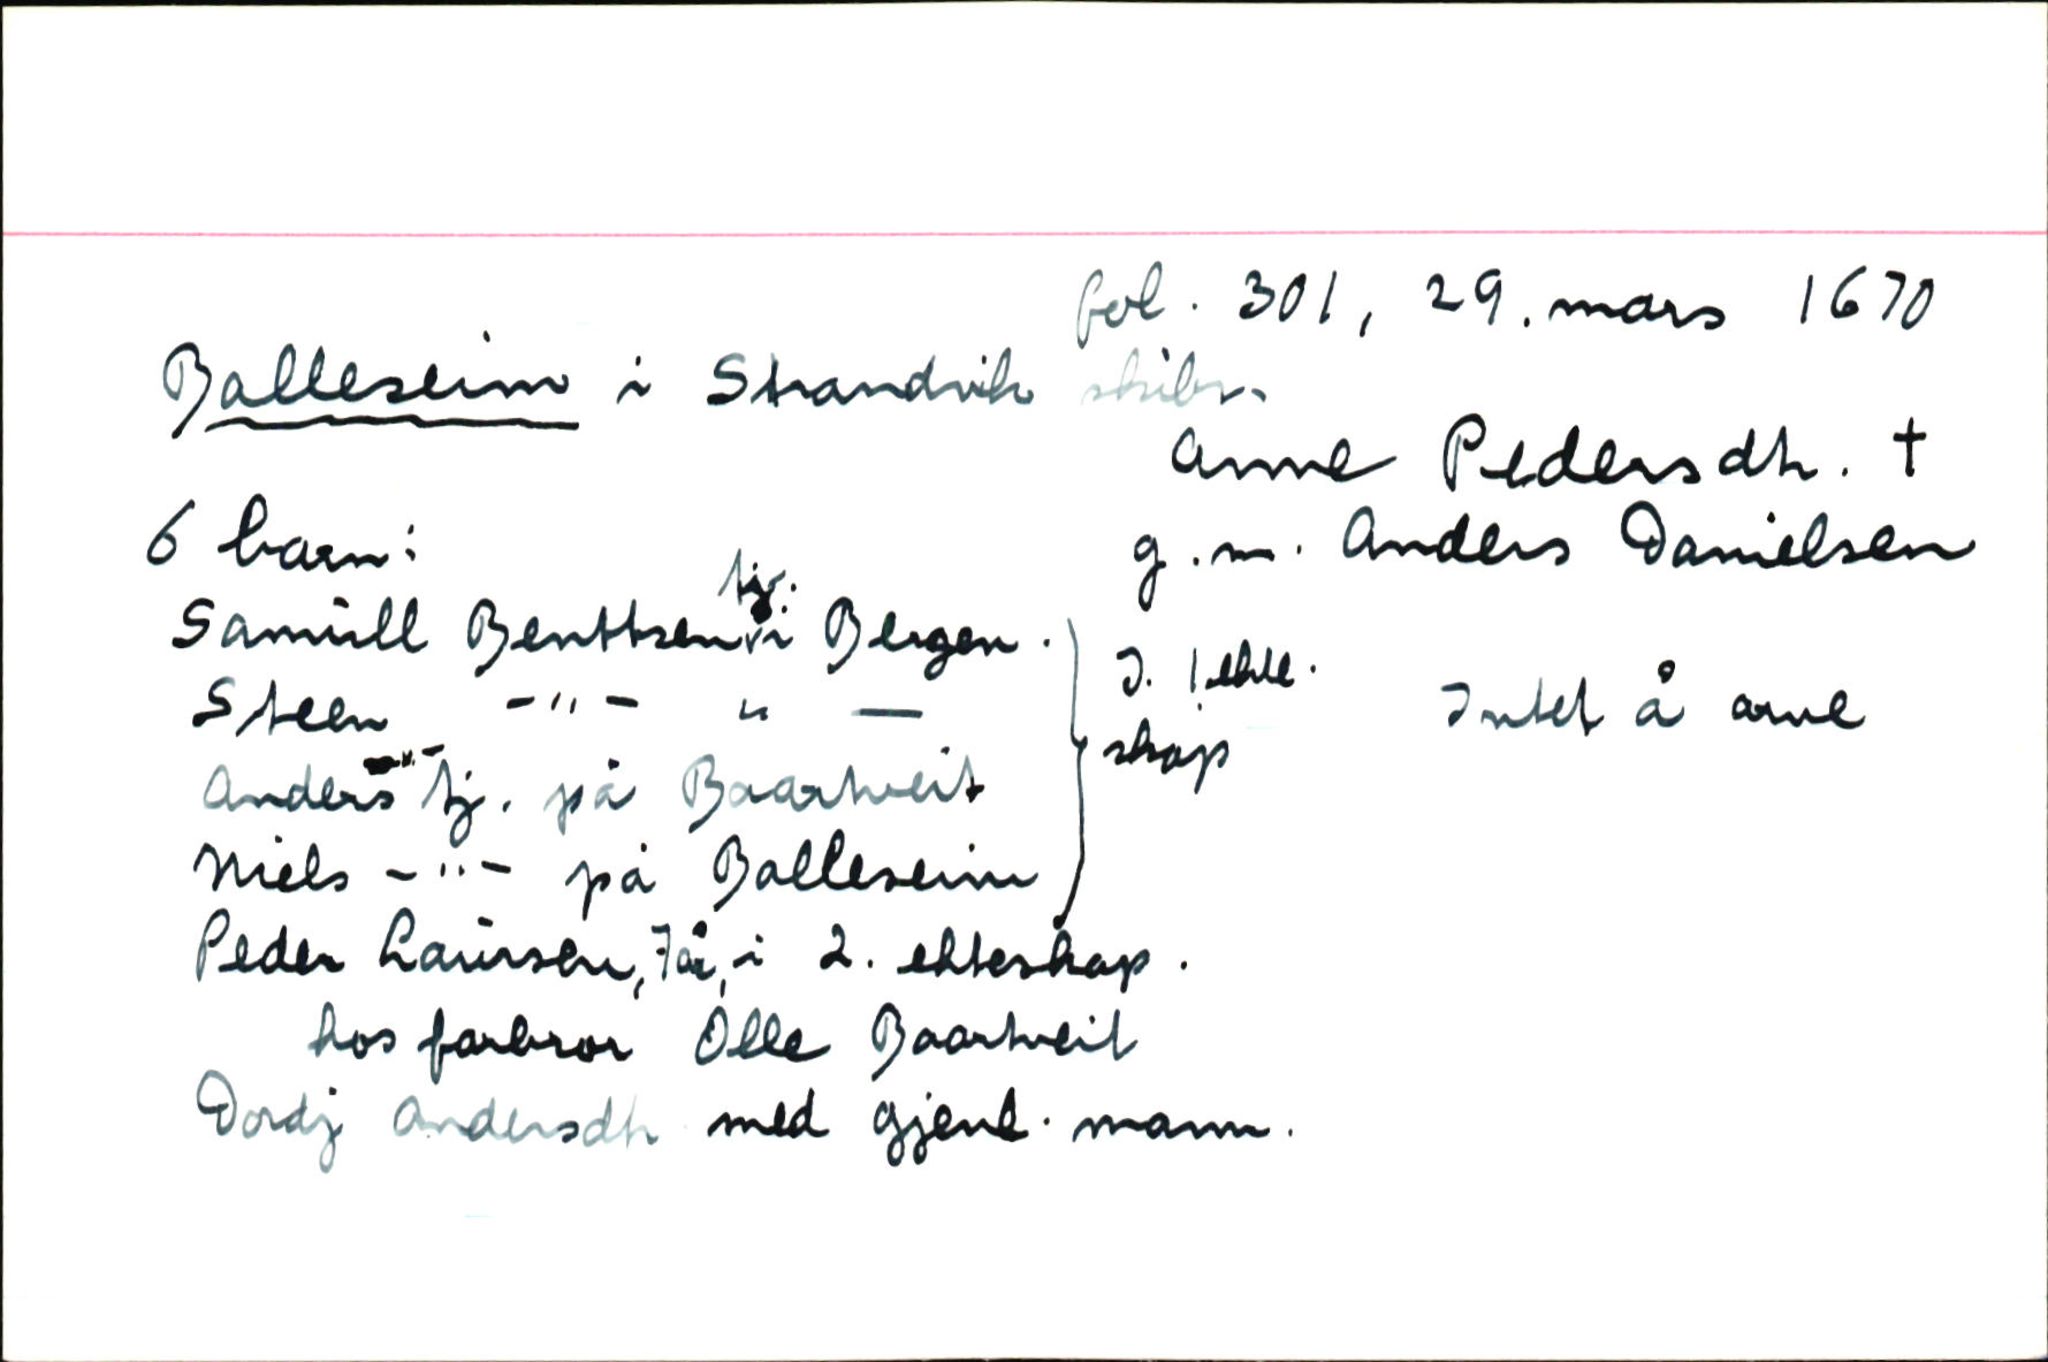 fol. 301, 29. mars 1670
Balleseim i Strandvik skibr.
Anne Pedersdtr. †
g.m. Anders Danielsen
6 barn:
Samúll Benttsen tj. i Bergen.
Steen -"- " —
Anders -"- tj. på Baartveit
Niels -"- på Balleseim
I. 1 ekte.
skap
Intet å arve
Peder Laúrsen, 7 år, i 2. ekteskap.
hos farbror Olle Baartveit
Dordj Andersdtr med gjenl. mann.